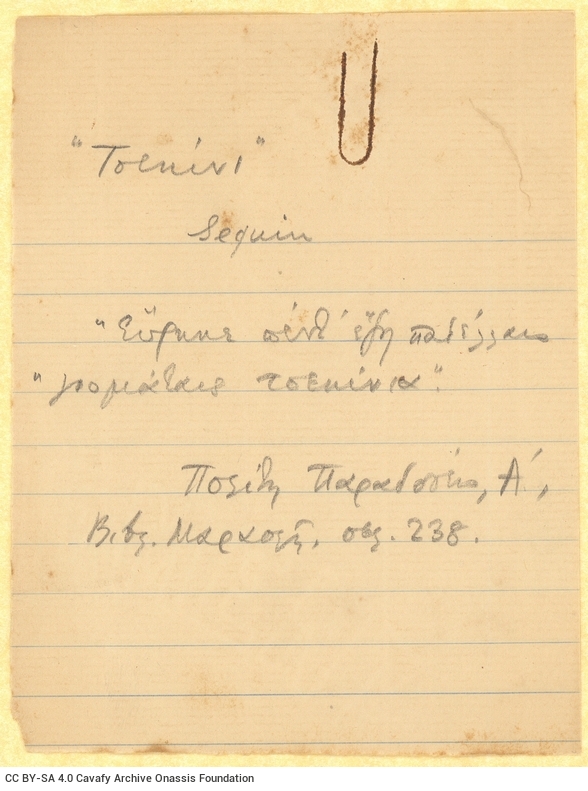 "Τσεκίνι"
Sequin
"Εὕρηκε πέντ' ἕξη πατέλλαις
"γιομάταις τσεκίνια".
Πολίτη Παραδόσεις, Α',
Βιβλ. Μαρασλῆ, σελ. 238.
CC BY-SA 4.0 Cavafy Archive Onassis Foundation